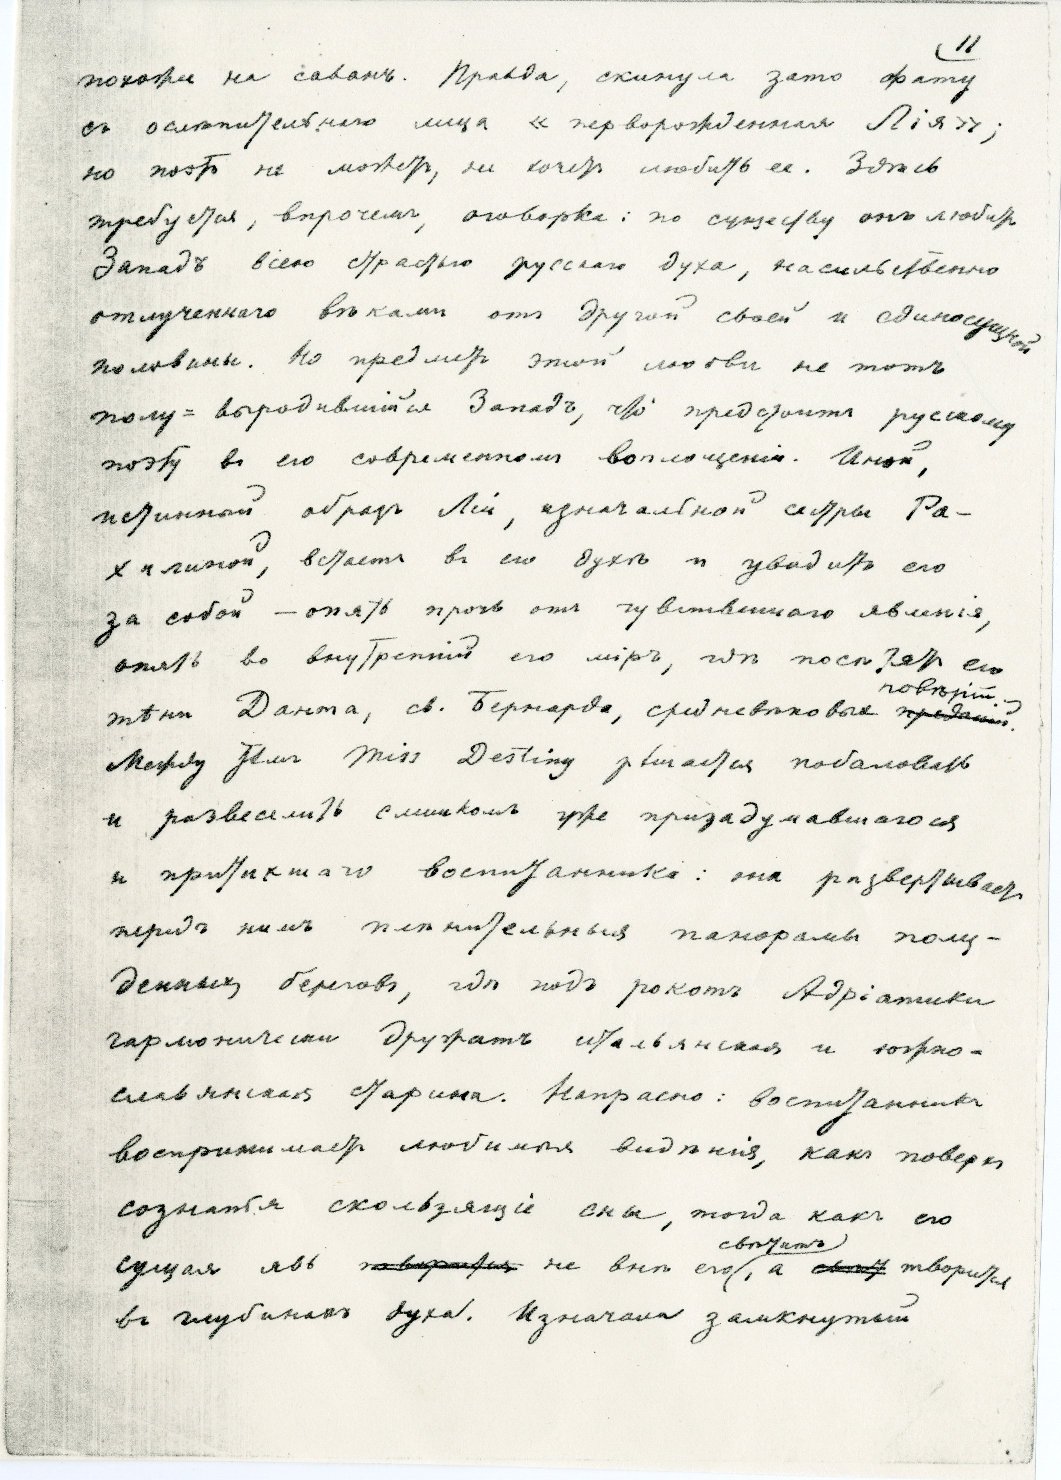 11
похожи на саванъ. Правда, скинула зато фату
съ ослѣпительнаго лица «перворожденная Лія»;
но поэтъ не можетъ, не хочетъ любить ее. Здѣсь
требуется, впрочемъ, оговорка: по существу онъ любитъ
Западъ всею страстью русскаго духа, насильственно
отлученнаго вѣками отъ другой своей и единосущной
половины. Но предметъ этой любви не тотъ
полу=выродившійся Западъ, что предстоитъ русскому
поэту въ его современномъ воплощеніи. Иной,
истинный образъ Ліи, изначальной сестры Ра-
хилиной, встаетъ въ его духѣ и уводитъ его
за собой — опять прочь отъ чувственнаго явленія,
опять во внутренній его міръ, гдѣ посѣтятъ его
повѣрій.
тѣни Данта, св. Бернарда, средневѣковыхъ преданій.
Между тѣмъ Miss Destiny рѣшается побаловать
и развеселить слишкомъ уже призадумавшагося
и притихшаго воспитанника: она развертываетъ
передъ нимъ плѣнительныя панорамы полу-
денныхъ береговъ, гдѣ подъ рокотъ Адріатики
гармонически дружатъ итальянская и южно-
славянская старина. Напрасно: воспитанникъ
воспринимаетъ любимыя видѣнія, какъ поверхъ
сознанья скользящіе сны, тогда какъ его
свѣтитъ
сущая явь творится не внѣ его, а творится
въ глубинахъ духа. Изначала замкнутый